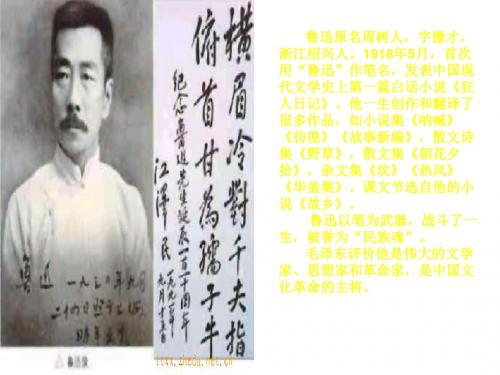 魯迅 一九三〇年九月
二十四日照于上海
時年五十
鲁迅像
橫眉冷對千夫指
俯首甘為孺子牛
紀念魯迅先生誕辰一百一十周年
江澤民
一九九一年
九月十五日
www.zhedu.net.cn
鲁迅原名周树人，字豫才，
浙江绍兴人。1918年5月，首次
用“鲁迅”作笔名，发表中国现
代文学史上第一篇白话小说《狂
人日记》。他一生创作和翻译了
很多作品，如小说集《呐喊》
《彷徨》《故事新编》，散文诗
集《野草》，散文集《朝花夕
拾》，杂文集《坟》《热风》
《华盖集》。课文节选自他的小
说《故乡》。
鲁迅以笔为武器，战斗了一
生，被誉为“民族魂”。
毛泽东评价他是伟大的文学
家、思想家和革命家，是中国文
化革命的主将。